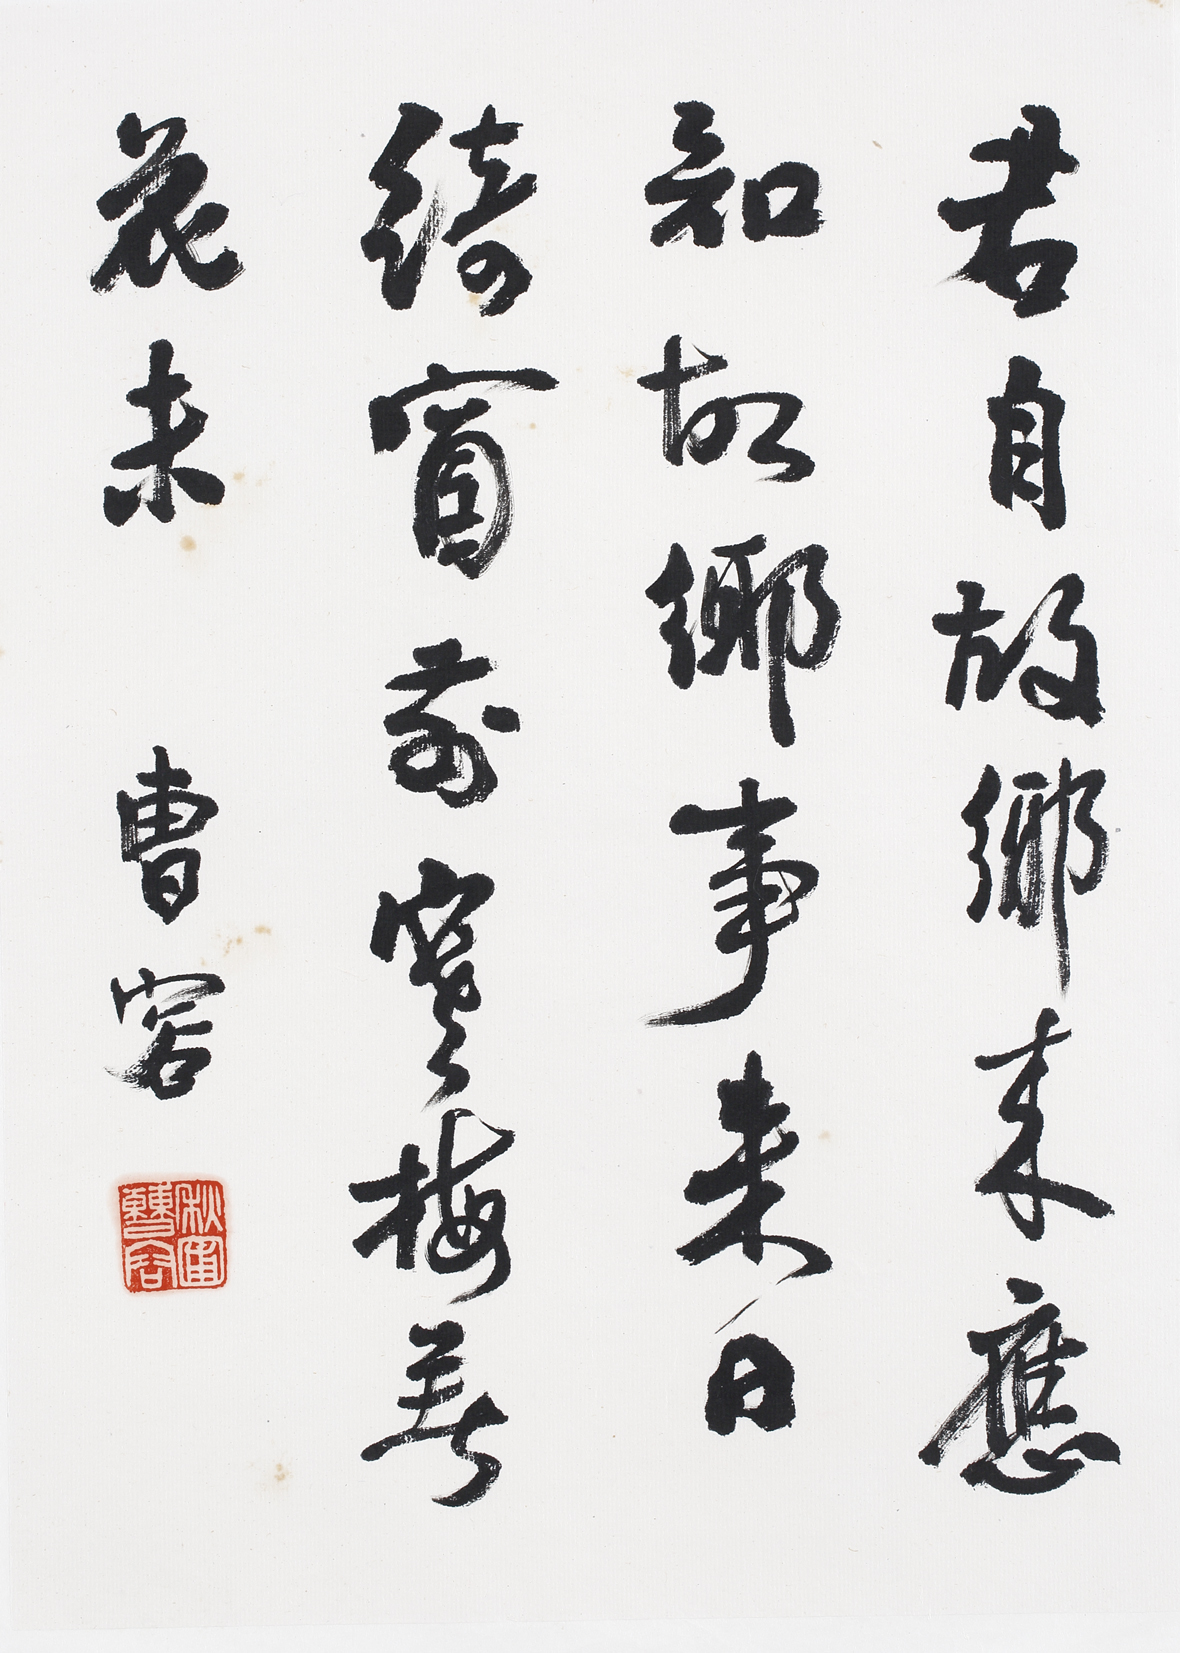 君自故鄉來應
知故鄉事來日
綺窗前寒梅著
花未 曹容
秋圃曹容